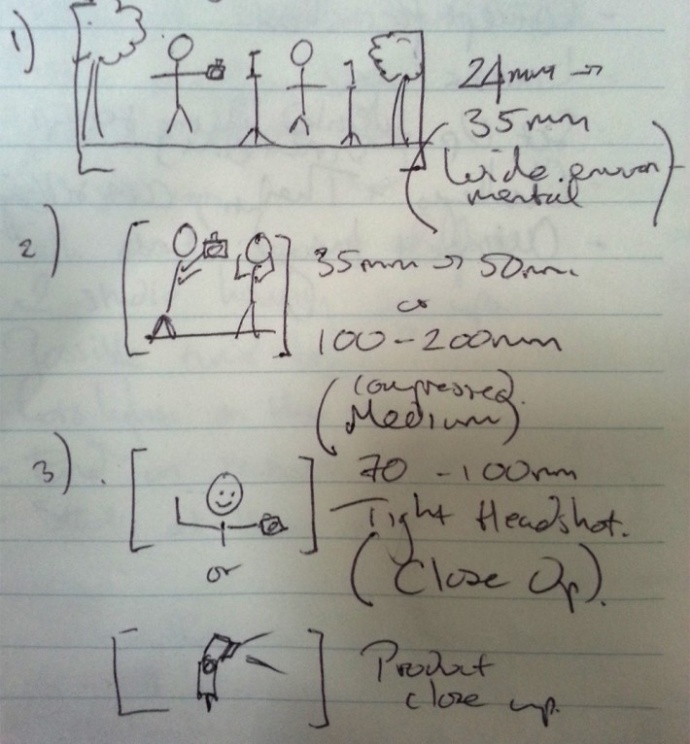 1)
24mm →
35mm
(Wide environ
mental)
2)
35mm → 50mm.
or
100-200mm
(Compressed.
Medium)
3).
70 - 100mm
Tight Headshot.
(Close Up).
or
Product
close up.